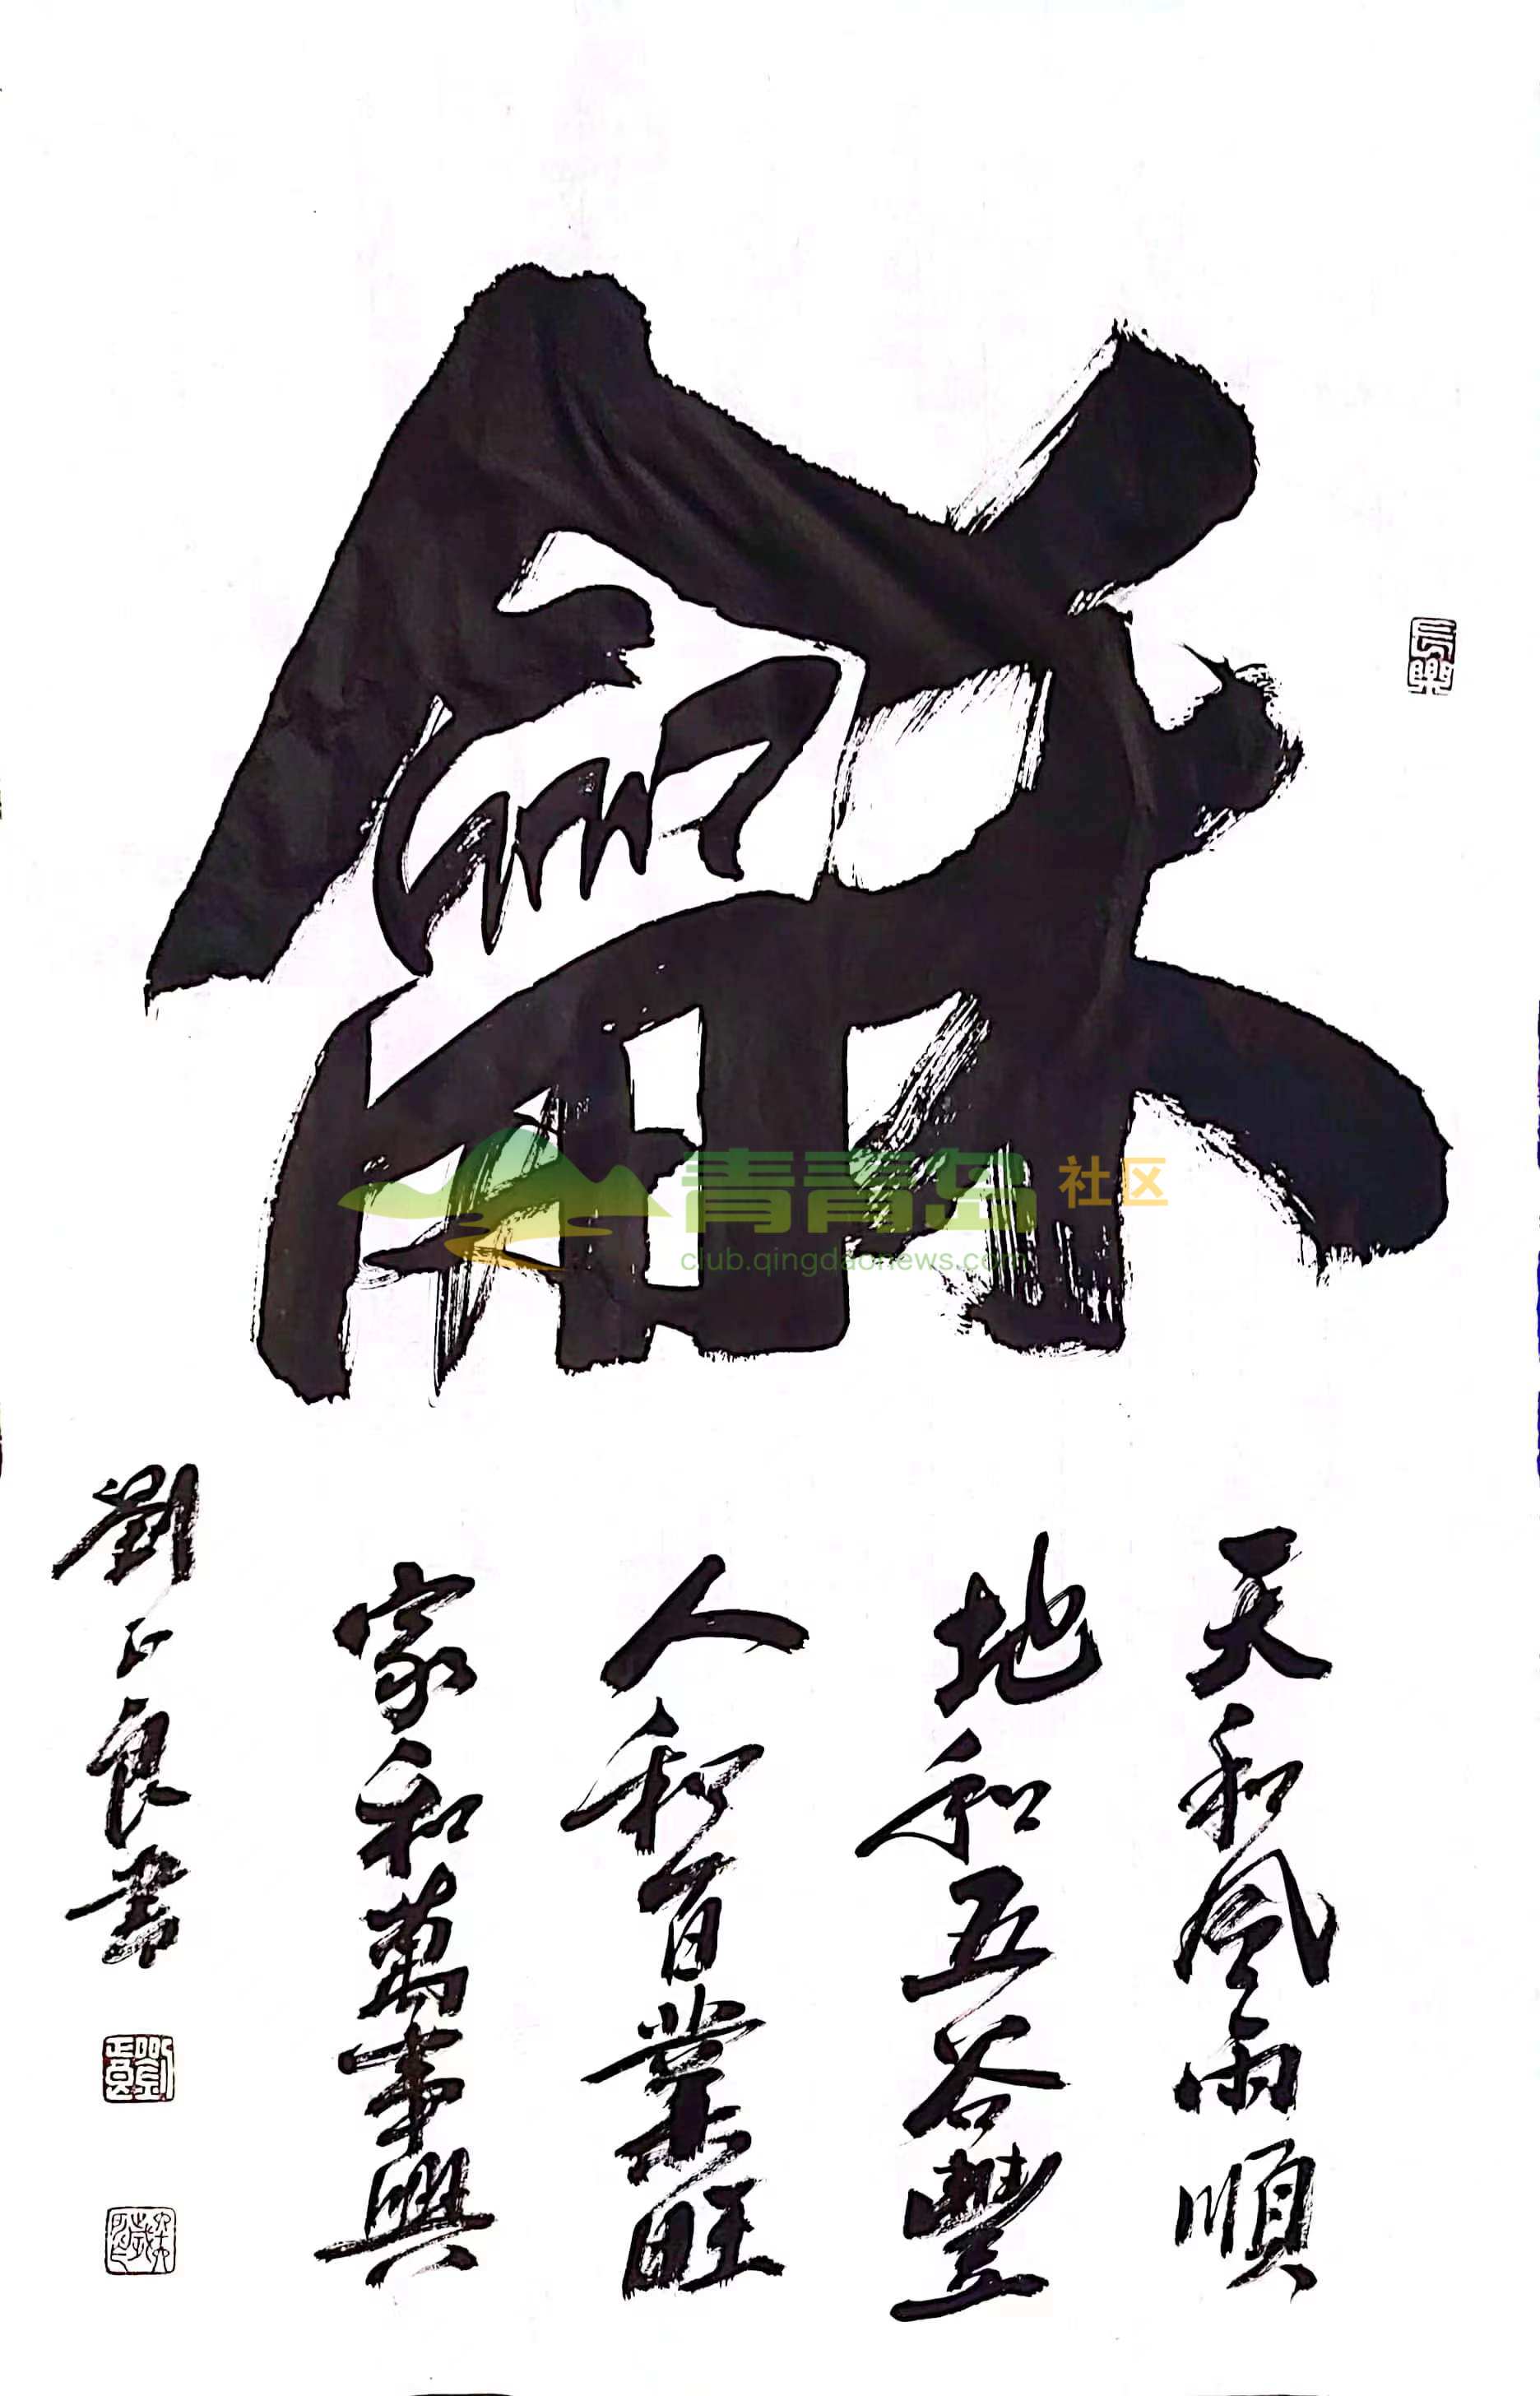 龢
天和風雨順
地和五谷豐
人和百業旺
家和萬事興
劉正良書
長樂
青青岛 社区
club.qingdaonews.com